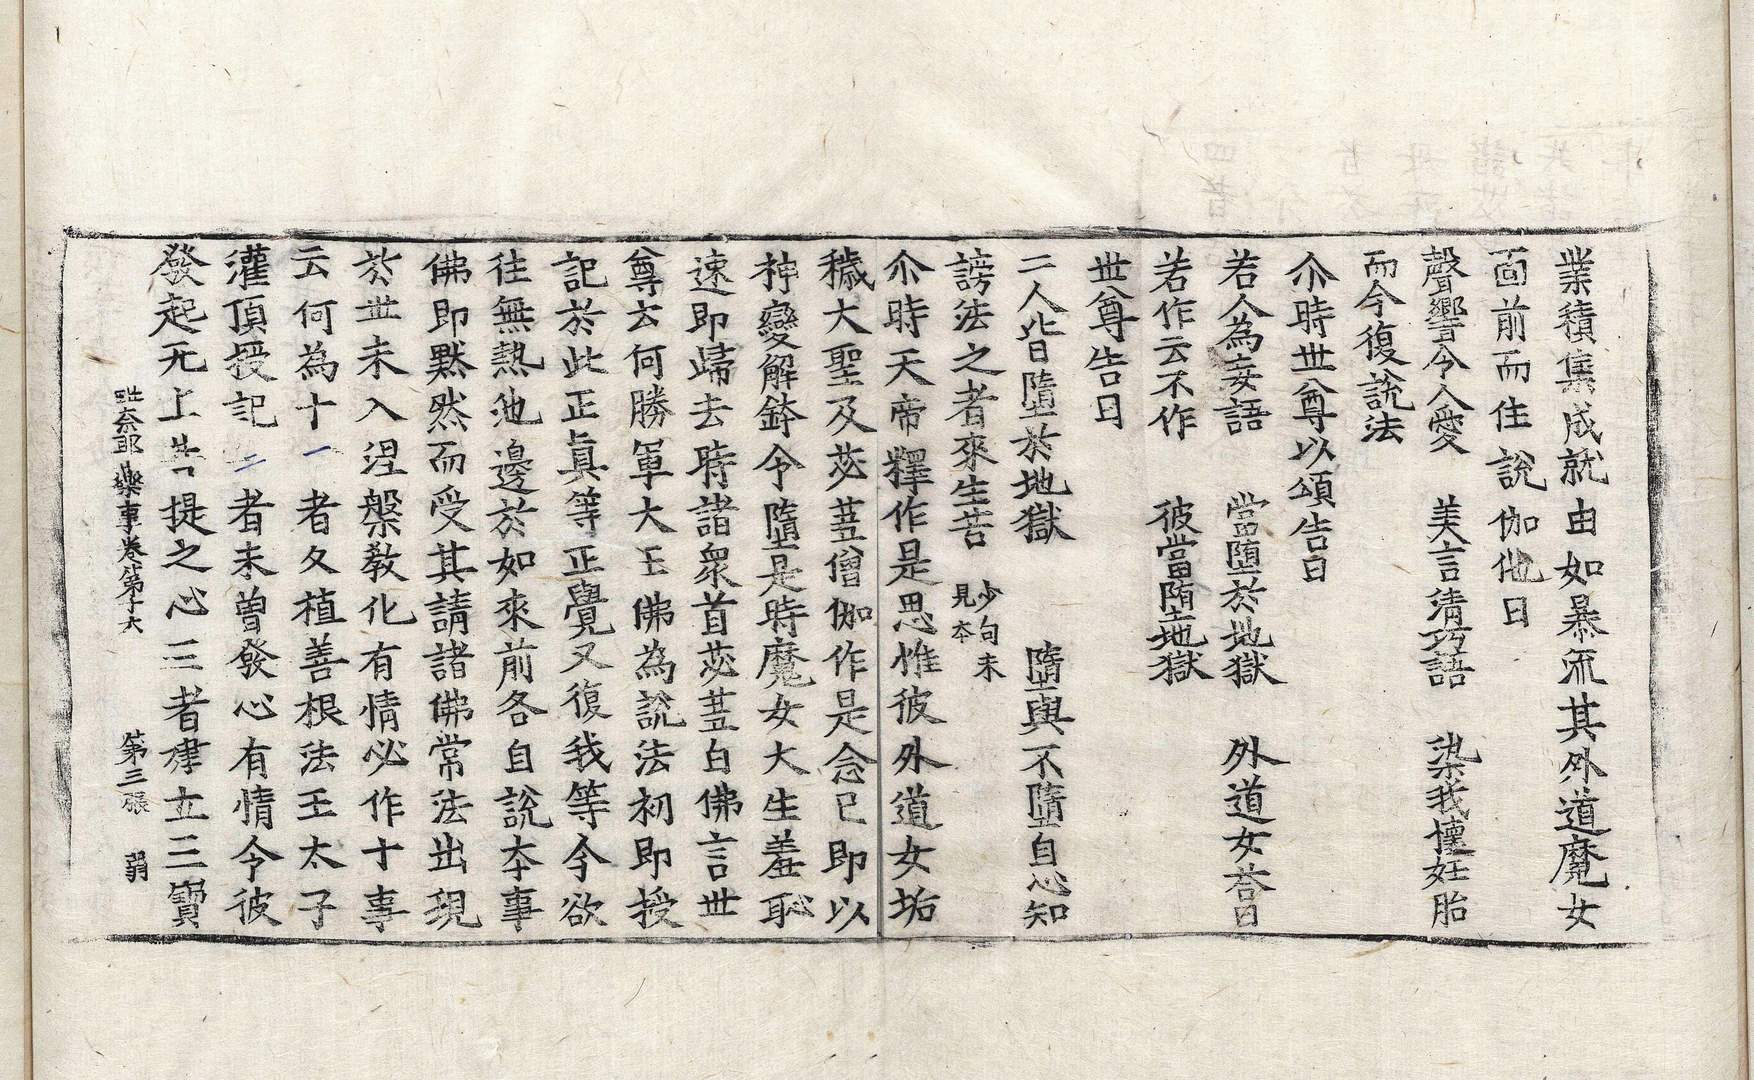 業積集成就由如暴流其外道魔女
面前而住說伽他曰
聲響令人愛　美言清巧語　染我懷妊胎
而今復說法
尒時世尊以頌告曰
若人為妄語　當墮於地獄　外道女荅曰
若作云不作　彼當墮地獄
世尊告曰
二人皆墮於地獄　墮與不墮自心知
謗法之者來生苦　少句未見本
尒時天帝釋作是思惟彼外道女垢
穢大聖及苾蒭僧伽作是念已即以
神變解鉢令墮是時魔女大生羞恥
速即歸去時諸衆首苾蒭白佛言世
尊云何勝軍大王佛為說法初即授
記於此正眞等正覺又復我等今欲
往無熱池邊於如來前各自說本事
佛即默然而受其請諸佛常法出現
於世未入涅槃敎化有情必作十事
云何為十一者久植善根法王太子
灌頂授記二者未曽發心有情令彼
發起无上菩提之心三者建立三寶
毗奈耶藥事卷第十六　第三張　弱